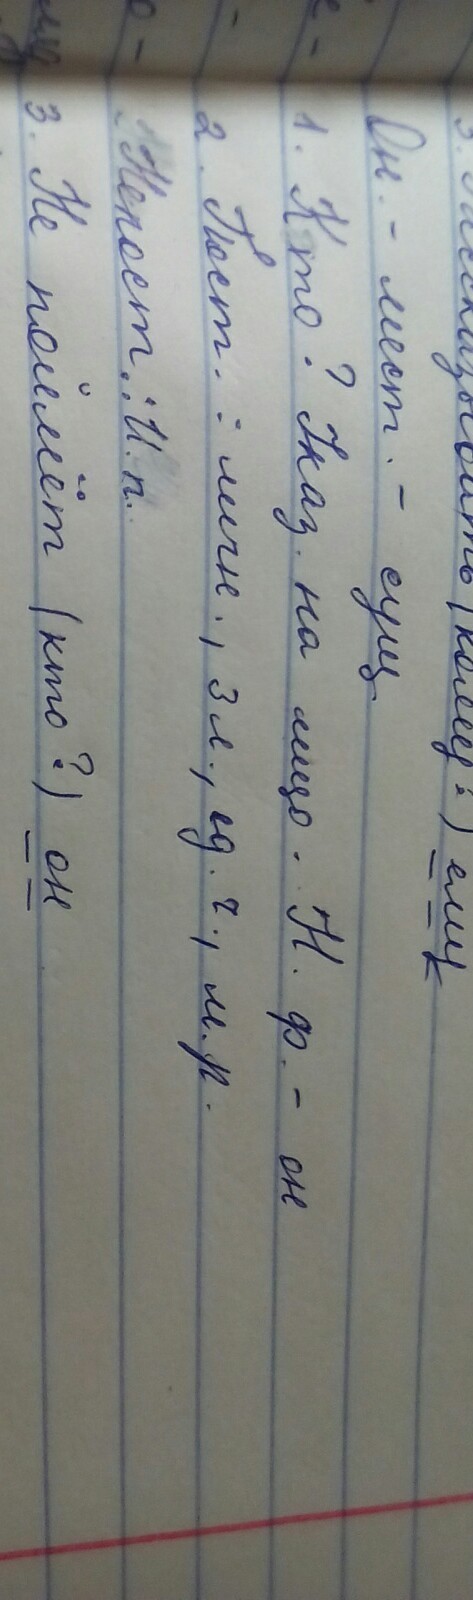 3. (кому?) ему
Он. - мест. - сущ
1. Кто? Указ. на лицо. Н. ф. - он
2. Пост. : личн., 3 л., ед. ч., м.р.
Непост.: И. п.
3. Не поймёт (кто?) он